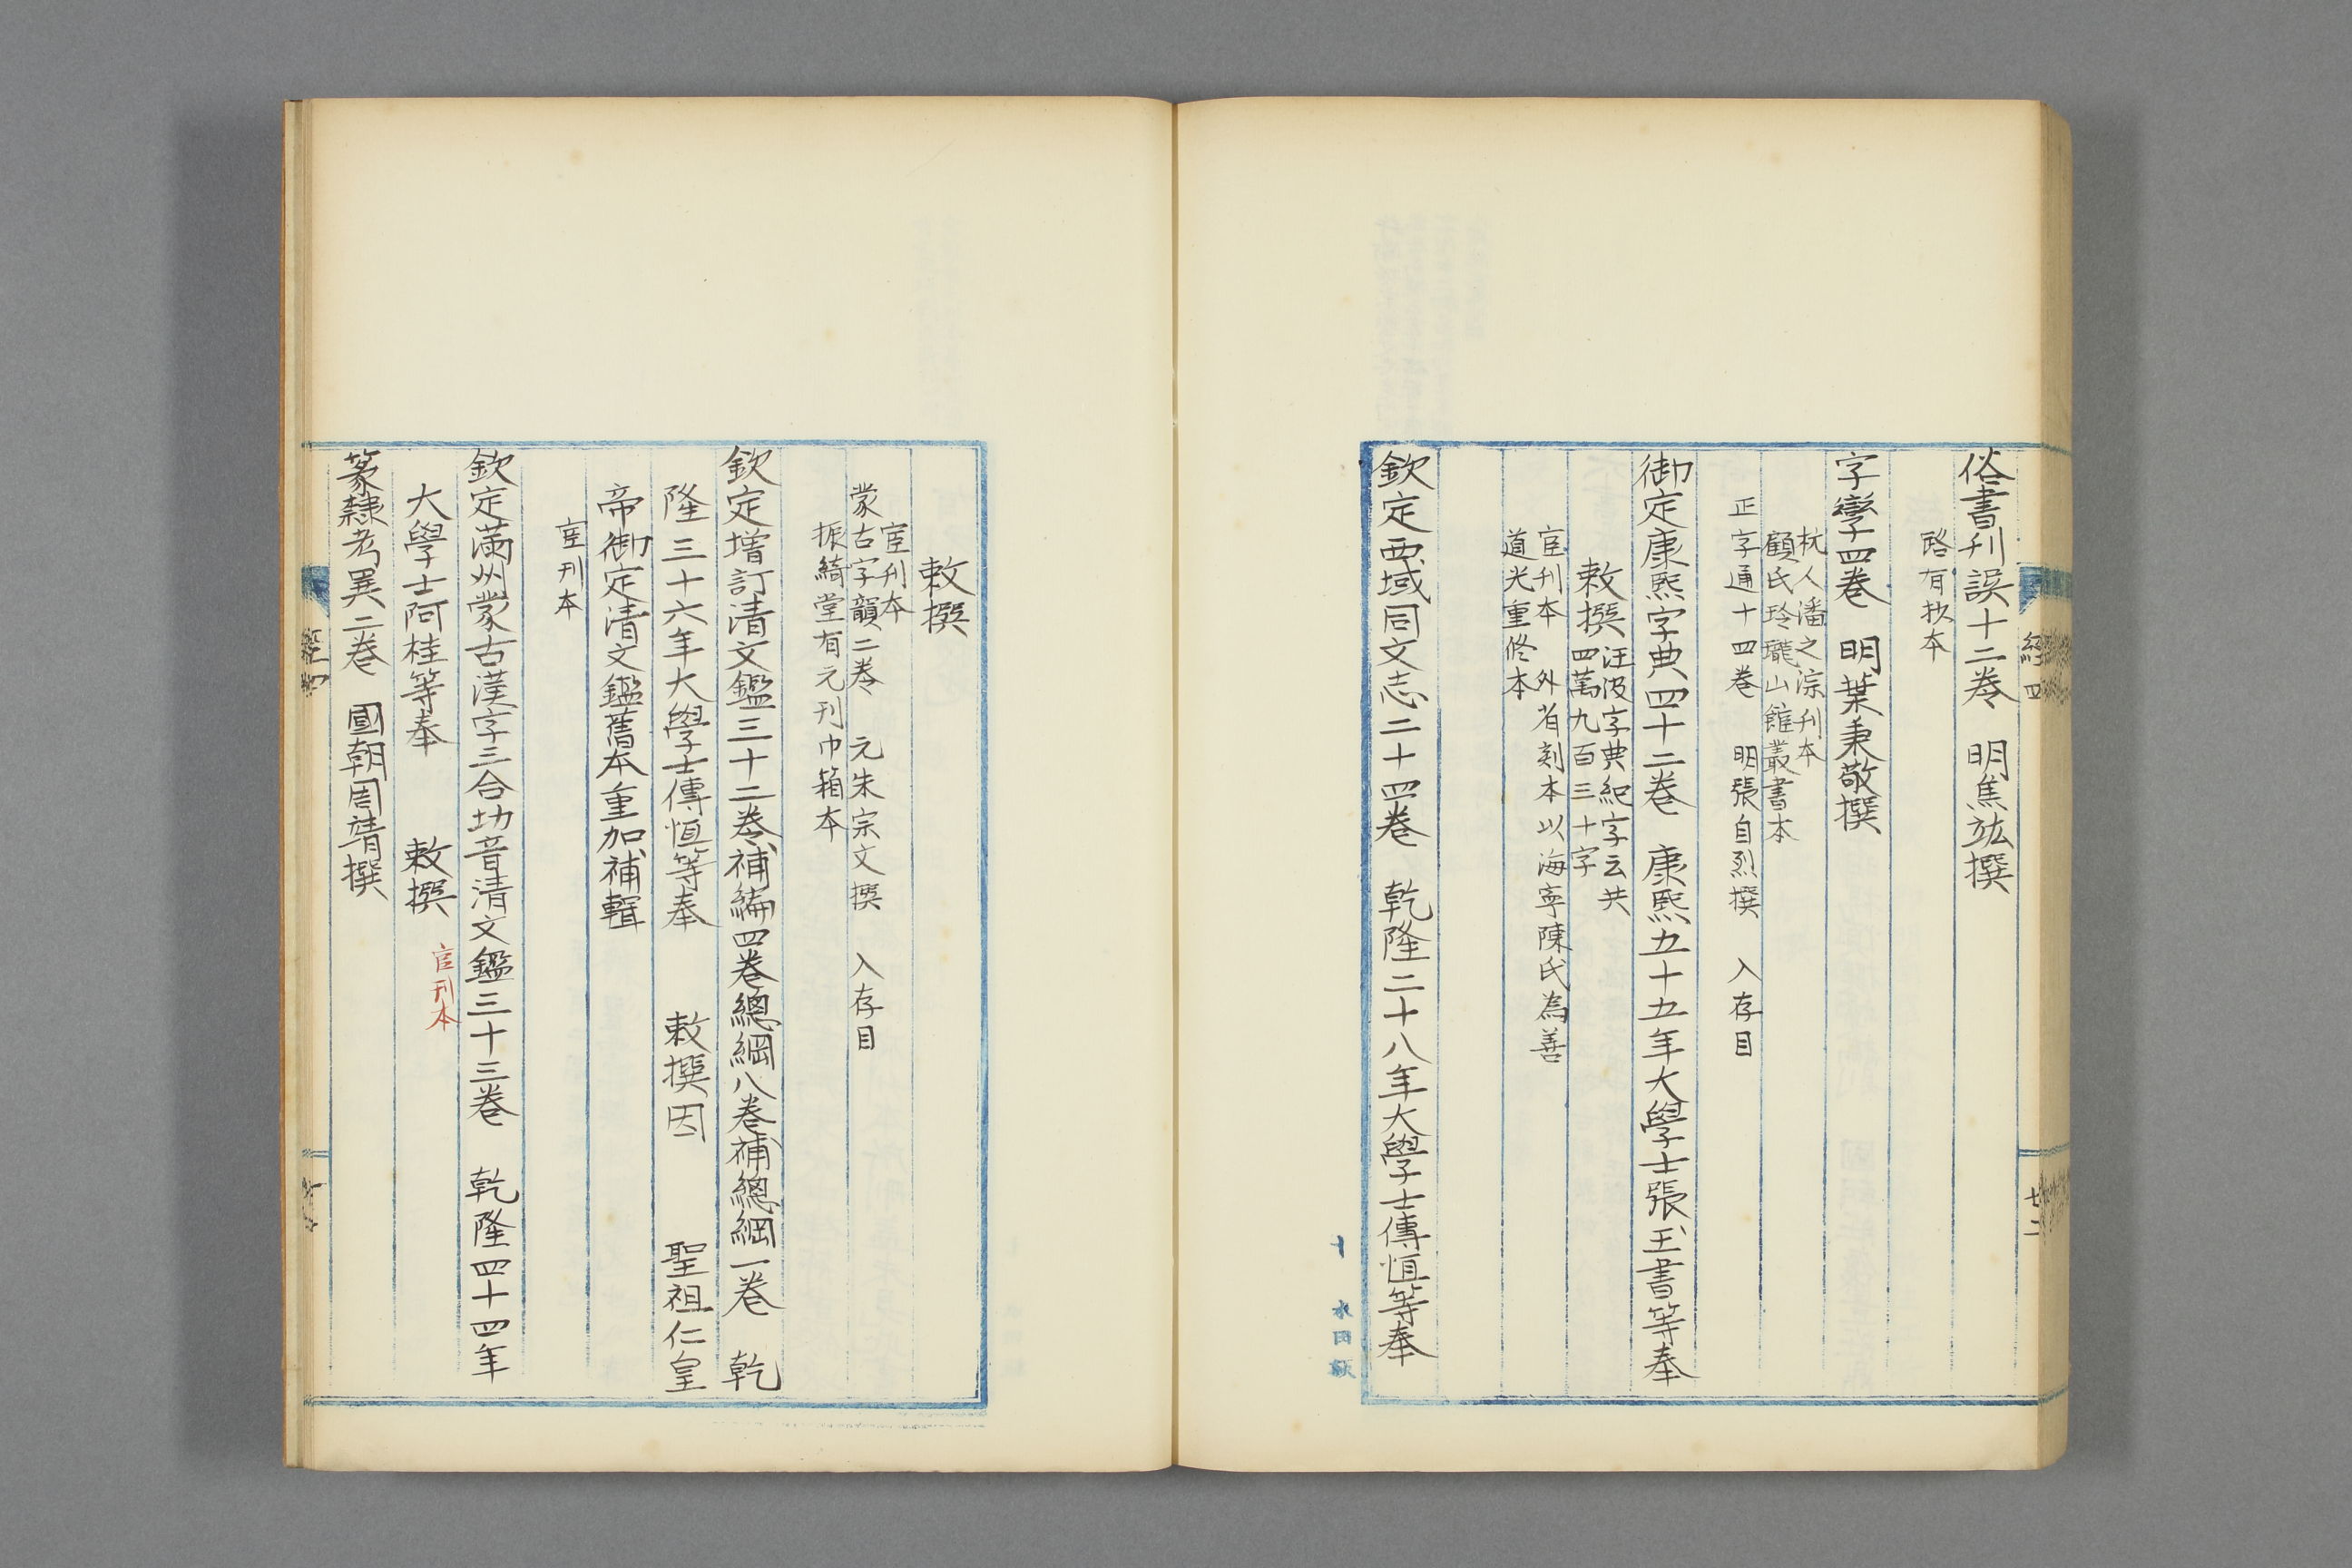 經四
廿二
俗書刊誤十二卷　明焦竑撰
路有抄本
字孿四卷　明葉秉敬撰
杭人潘之淙刊本
顧氏玲瓏山館叢書本
正字通十四卷　明張自烈撰　入存目
御定康熙字典四十二卷　康熙五十五年大學士張玉書等奉
敕撰
汪汲字典紀字云共
四萬九百三十字
官刊本　外省刻本以海寧陳氏為善
道光重修本
欽定西域同文志二十四卷　乾隆二十八年大學士傅恒等奉
敕撰
官刊本
蒙古字韻二卷　元朱宗文撰　入存目
振綺堂有元刊巾箱本
欽定增訂清文鑑三十二卷補編四卷總綱八卷補總綱一卷　乾
隆三十六年大學士傅恒等奉　敕撰因　聖祖仁皇
帝御定清文鑑舊本重加補輯
官刊本
欽定滿州蒙古漢字三合切音清文鑑三十三卷　乾隆四十四年
大學士阿桂等奉　敕撰
官刊本
篆隸考異二卷　國朝周靖撰
經四